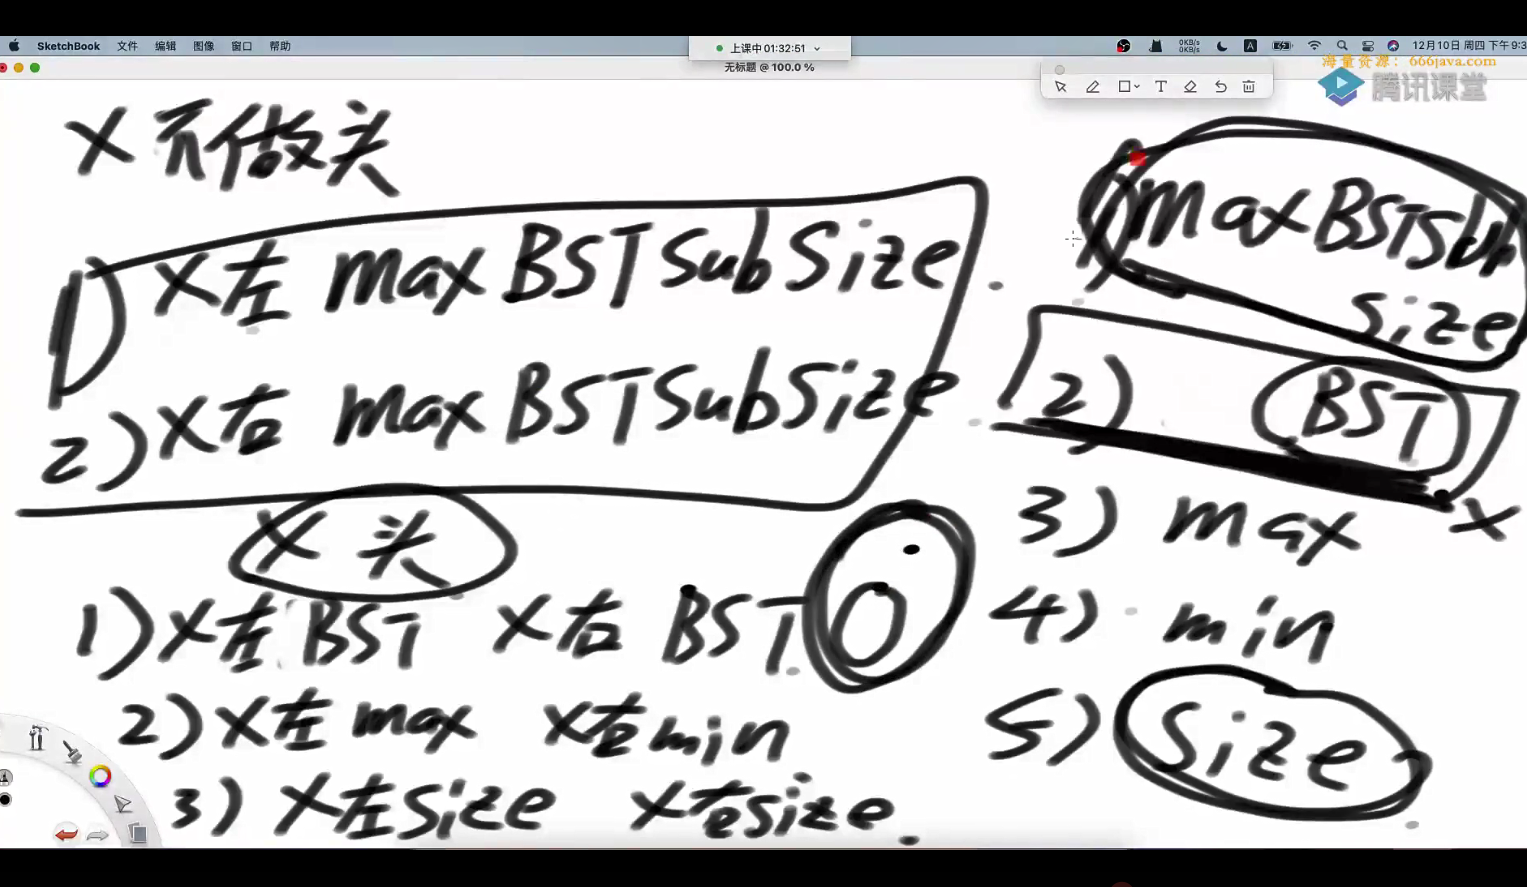 SketchBook 文件 编辑 图像 窗口 帮助
上课中 01:32:51
0KB/s
0KB/s
A
12月10日 周四 下午9:3
无标题 @ 100.0 %
海量资源：666java.com
腾讯课堂
T
X 不做头
1) X左 maxBSTSubSize
2) X右 maxBSTSubSize
X 头
1) X左 BST X右 BST
2) X左 max X右 min
3) X左 size X右 size
1) maxBSTSub
size
2) BST
X
3) max
4) min
5) Size